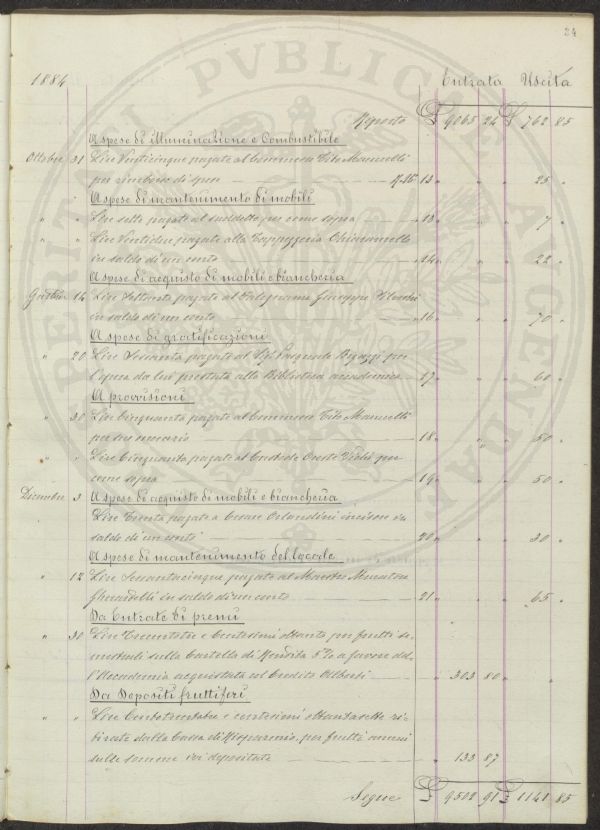 24
1884 Entrata Uscita
Riporto £ 9065 24 £ 762 85
A spese di illuminazione e Combustibile
Ottobre 31 Lire Venticinque pagate al Commesso Tito Mannelli
per rimborso di spese 13 25
A spese di mantenimento di mobili
" " Lire sette pagate al suddetto per come sopra 13 7
" " Lire Ventidue pagate alla Tappezzeria
in saldo di un conto 14 22
A spese di acquisto di mobili e biancheria
24 Lire Settanta pagate al Falegname Giuseppe
in saldo di un conto 16 70
A spese di gratificazioni
" 20 Lire Sessanta pagate al Sig. Pasquale Bigazzi per
l'opera da lui prestata alla Biblioteca accademica 17 60
A provvisioni
" 30 Lire Cinquanta pagate al Commesso Tito Mannelli
per suo onorario 18 50
" " Lire Cinquanta pagate al Custode Oreste per
come sopra 19 50
Dicembre 3 A spese di acquisto di mobili e biancheria
Lire Trenta pagate a Cesare Orlandini incisore in
saldo di un conto 20 30
A spese di mantenimento del locale
" 12 Lire Sessantacinque pagate al Maestro Muratore
Gherardelli in saldo di un conto 21 65
Da Entrate di premi
" 30 Lire Trecentotre e centesimi ottanta per frutti se-
mestrali sulla Cartella di Rendita 5% a favore del-
l'Accademia acquistata col Lascito Alberti 303 80
Da Depositi fruttiferi
" " Lire Centotrentatre e centesimi ottantasette ri-
tirate dalla Cassa di Risparmio, per frutti annui
sulle somme ivi depositate 133 87
Segue £ 9502 91 £ 1141 85
PERITAT PVBLICAE AVGENDAE